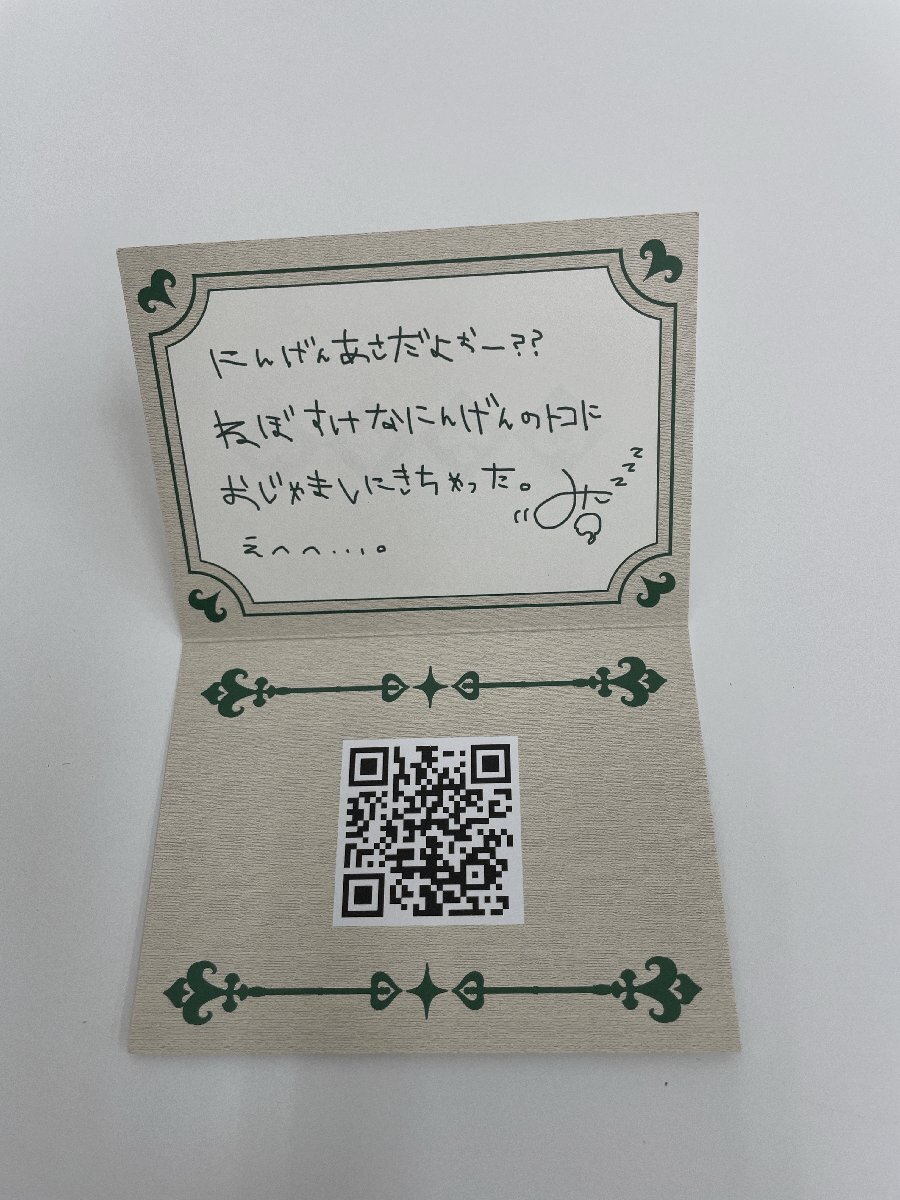 にんげんあさだよぉー??
ねぼすけなにんげんのトコに
おじゃましにきちゃった。
えへへ...。
zzz